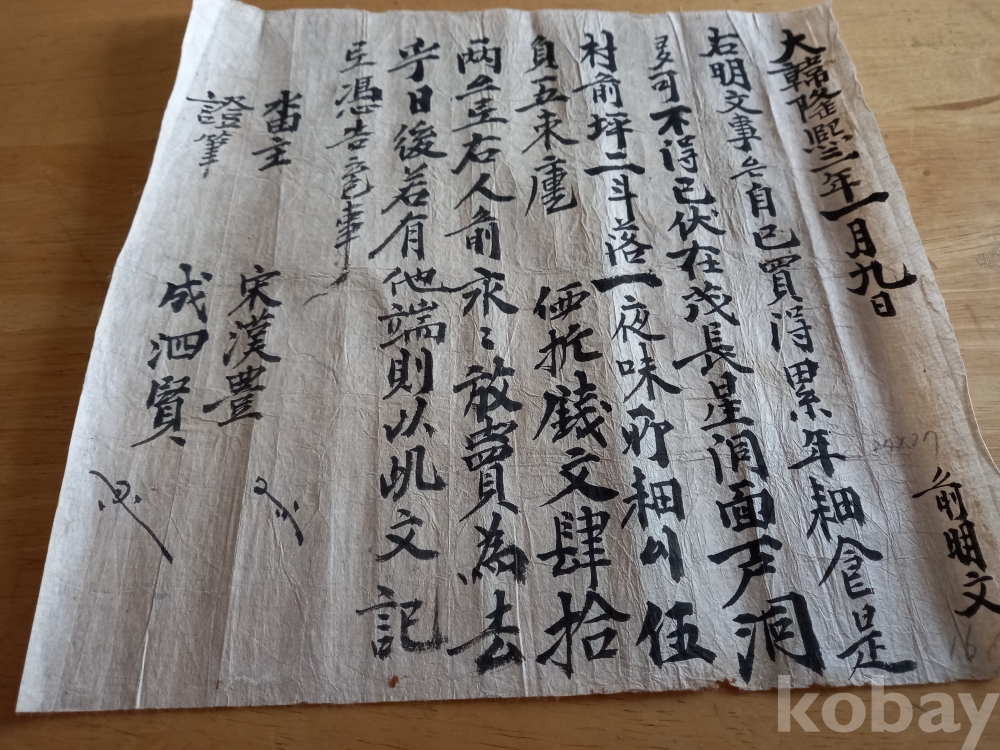 大韓隆熙三年一月九日 前明文
右明文事自己買得累年耕食是
可不得已伏在茂長星洞面芦洞
村前坪二斗落一夜味所耕伍
負五束庫 価折錢文肆拾
両右人前永〻放賣為去
乎日後若有他端則以此文記
憑告官事
畓主 宋漢豊
證筆 成泗賢
16
kobay